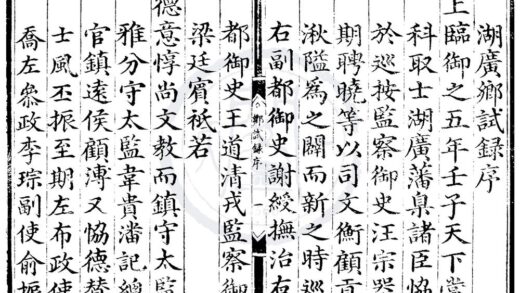 湖廣鄉試録序
上臨御之五年壬子天下當
科取士湖廣藩臬諸臣恊
於巡按監察御史汪宗器
期聘曉等以司文衡顧貢
湫隘為之闢而新之時巡
右副都御史謝綬撫治右
鄉試録序 一
都御史王道清戎監察御
梁廷賓祗若
德意惇尚文教而鎮守太監
雅分守太監韋貴潘記總
官鎮遠侯顧溥又恊德替
士風丕振至期左布政使
喬左叅政李琮副使俞振